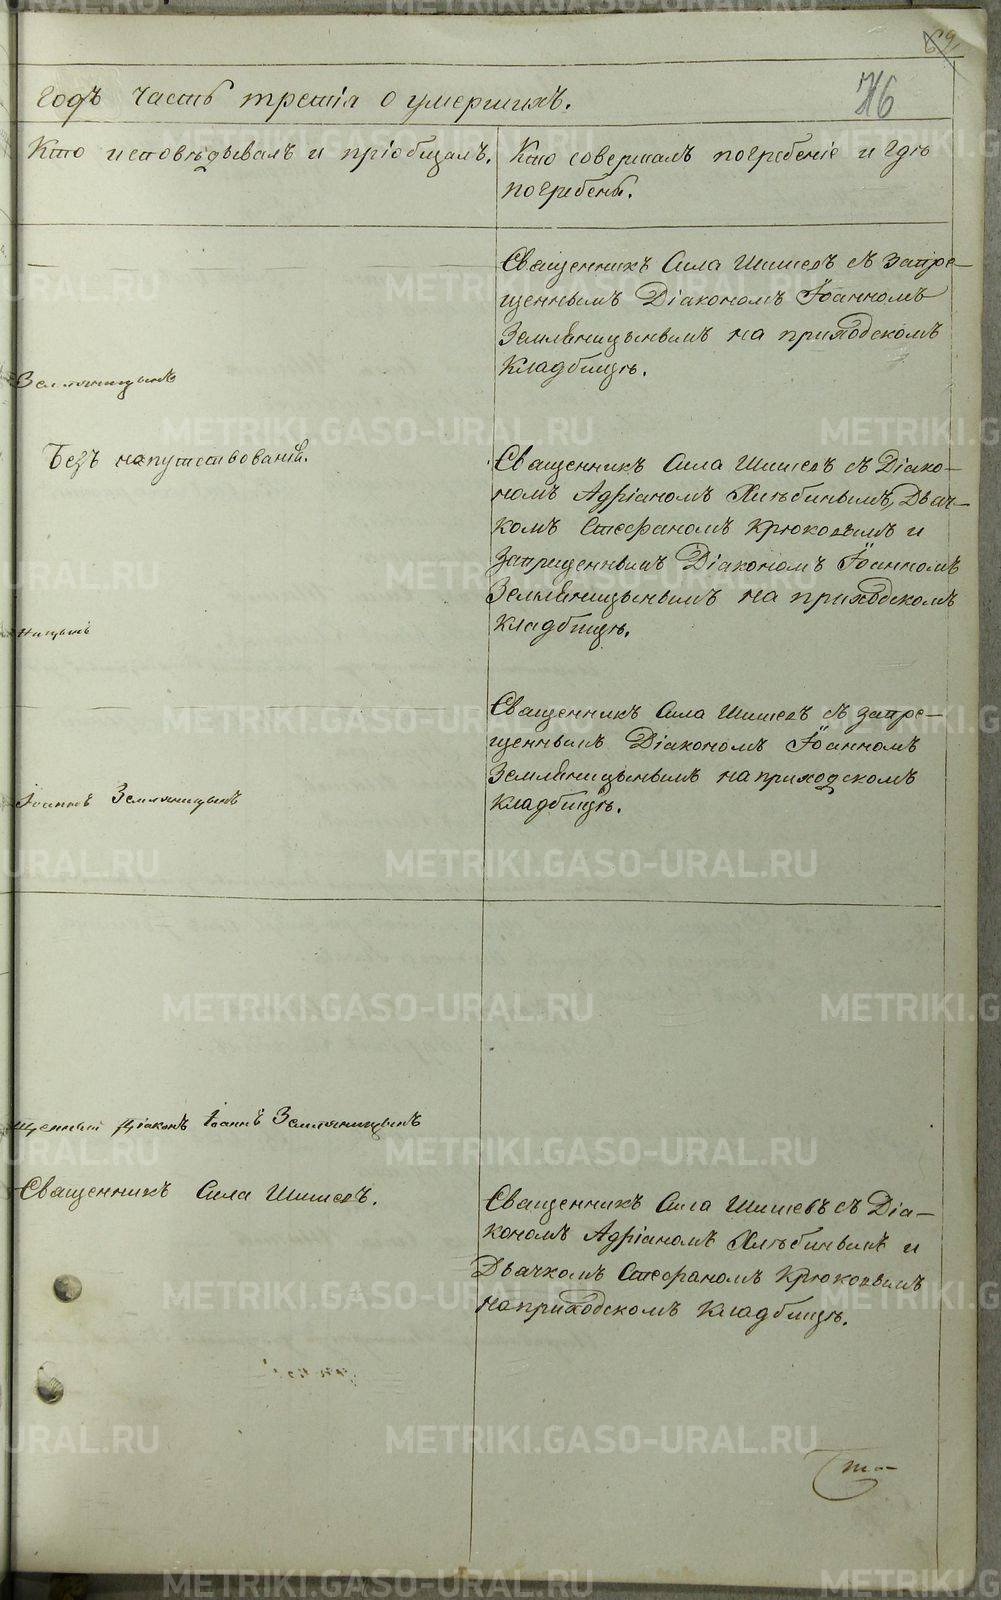 69
76
годъ часть третія о умершихъ.
Кто исповѣдывалъ и пріобщалъ.
Кто совершалъ погребеніе и гдѣ
погребены.
Священникъ Сила Шишевъ съ запре-
щеннымъ Діакономъ Іоанномъ
Земляницынымъ на приходскомъ
Кладбищѣ.
Земляницынъ
Безъ напутствованія.
Священникъ Сила Шишевъ съ Діако-
номъ Адріаномъ Хлѣбинымъ, Дьяч-
комъ Стефаномъ Крюковымъ и
Запрещеннымъ Діакономъ Іоанномъ
Земляницынымъ на приходскомъ
Кладбищѣ.
ницынъ
Священникъ Сила Шишевъ съ запре-
щеннымъ Діакономъ Іоанномъ
Земляницынымъ на приходскомъ
Кладбищѣ.
Іоаннъ Земляницынъ
щенный Діаконъ Іоаннъ Земляницынъ
Священникъ Сила Шишевъ.
Священникъ Сила Шишевъ съ Діа-
кономъ Адріаномъ Хлѣбинымъ и
Дьячкомъ Стефаномъ Крюковымъ
на приходскомъ Кладбищѣ.
METRIKI.GASO-URAL.RU